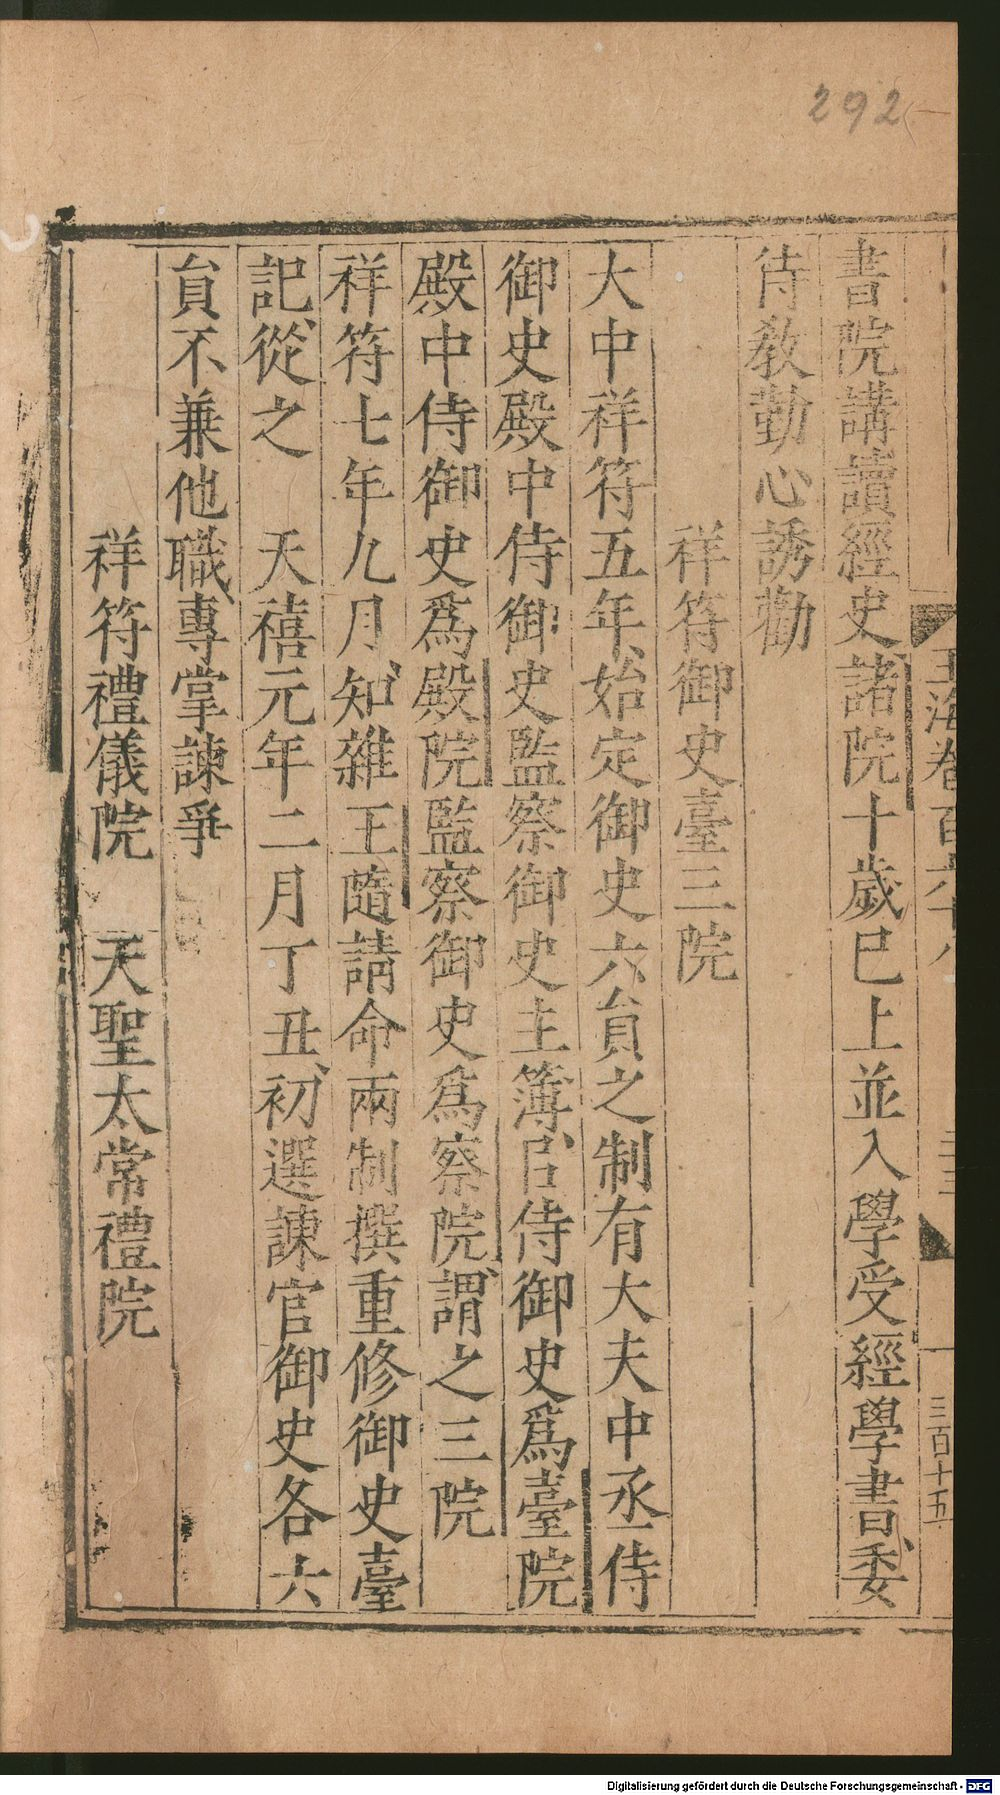 292
玉海卷百六十八
三百十五
書院講讀經史諸院十歲已上並入學受經學書、委
待敎勤心誘勸
祥符御史臺三院
大中祥符五年、始定御史六負之制有大夫中丞侍
御史殿中侍御史監察御史主簿、以侍御史爲臺院
殿中侍御史爲殿院監察御史爲察院、謂之三院
祥符七年九月、知雜王隨請命兩制撰重修御史臺
記、從之　天禧元年二月丁丑、初選諫官御史各六
負不兼他職、專掌諫爭
祥符禮儀院　天聖太常禮院
Digitalisierung gefördert durch die Deutsche Forschungsgemeinschaft - DFG